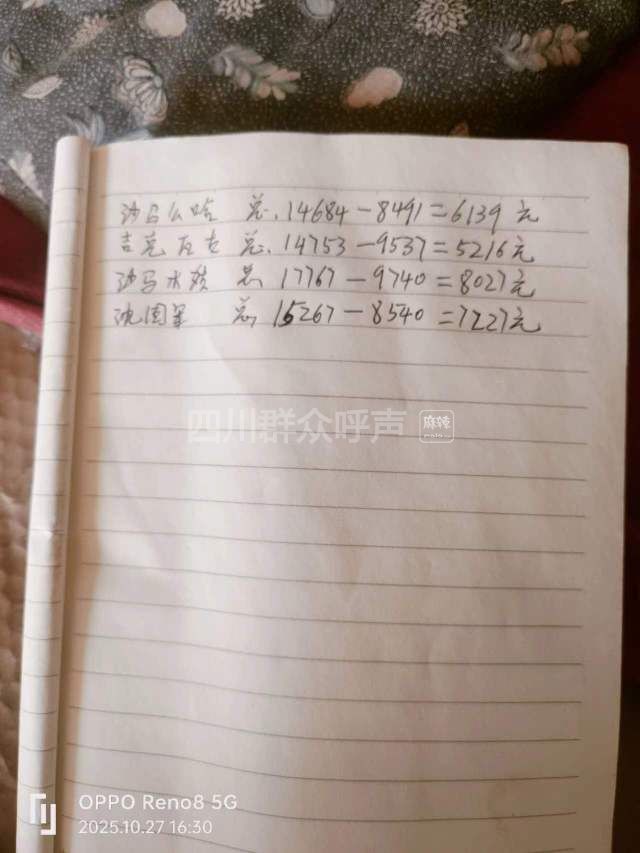 沙马么哈 总.14684-8491=6139元
吉克瓦专 总.14753-9537=5216元
沙马木 总 17767-9740=8027元
沈国 总 15267-8540=7227元
四川群众呼声 麻辣
OPPO Reno8 5G
2025.10.27 16:30